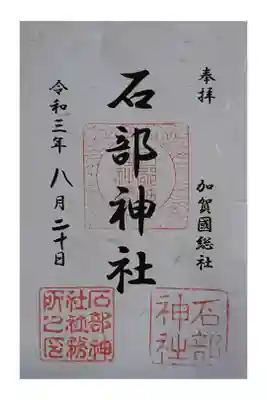 奉拝
加賀國総社
石部神社
令和三年八月二十日
石部
神社
石部神
社社務
所之印